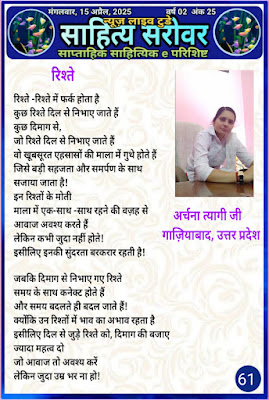 मंगलवार, 15 अप्रैल, 2025 वर्ष 02 अंक 25
न्यूज़ लाइव टुडे
साहित्य सरोवर
साप्ताहिक साहित्यिक e परिशिष्ट
रिश्ते
रिश्ते -रिश्ते में फर्क होता है
कुछ रिश्ते दिल से निभाए जाते हैं
कुछ दिमाग से,
जो रिश्ते दिल से निभाए जाते हैं
वो खूबसूरत एहसासों की माला में गुथे होते हैं
जिसे बड़ी सहजता और समर्पण के साथ
सजाया जाता है!
इन रिश्तों के मोती
माला में एक-साथ -साथ रहने की वज़ह से
आवाज अवश्य करते हैं
लेकिन कभी जुदा नहीं होते!
इसीलिए इनकी सुंदरता बरकरार रहती है!
जबकि दिमाग से निभाए गए रिश्ते
समय के साथ कनेक्ट होते हैं
और समय बदलते ही बदल जाते हैं!
क्योंकि उन रिश्तों में भाव का अभाव रहता है
इसीलिए दिल से जुड़े रिश्ते को, दिमाग की बजाए
ज्यादा महत्व दो
जो आवाज तो अवश्य करें
लेकिन जुदा उम्र भर ना हो!
अर्चना त्यागी जी
गाज़ियाबाद, उत्तर प्रदेश
61